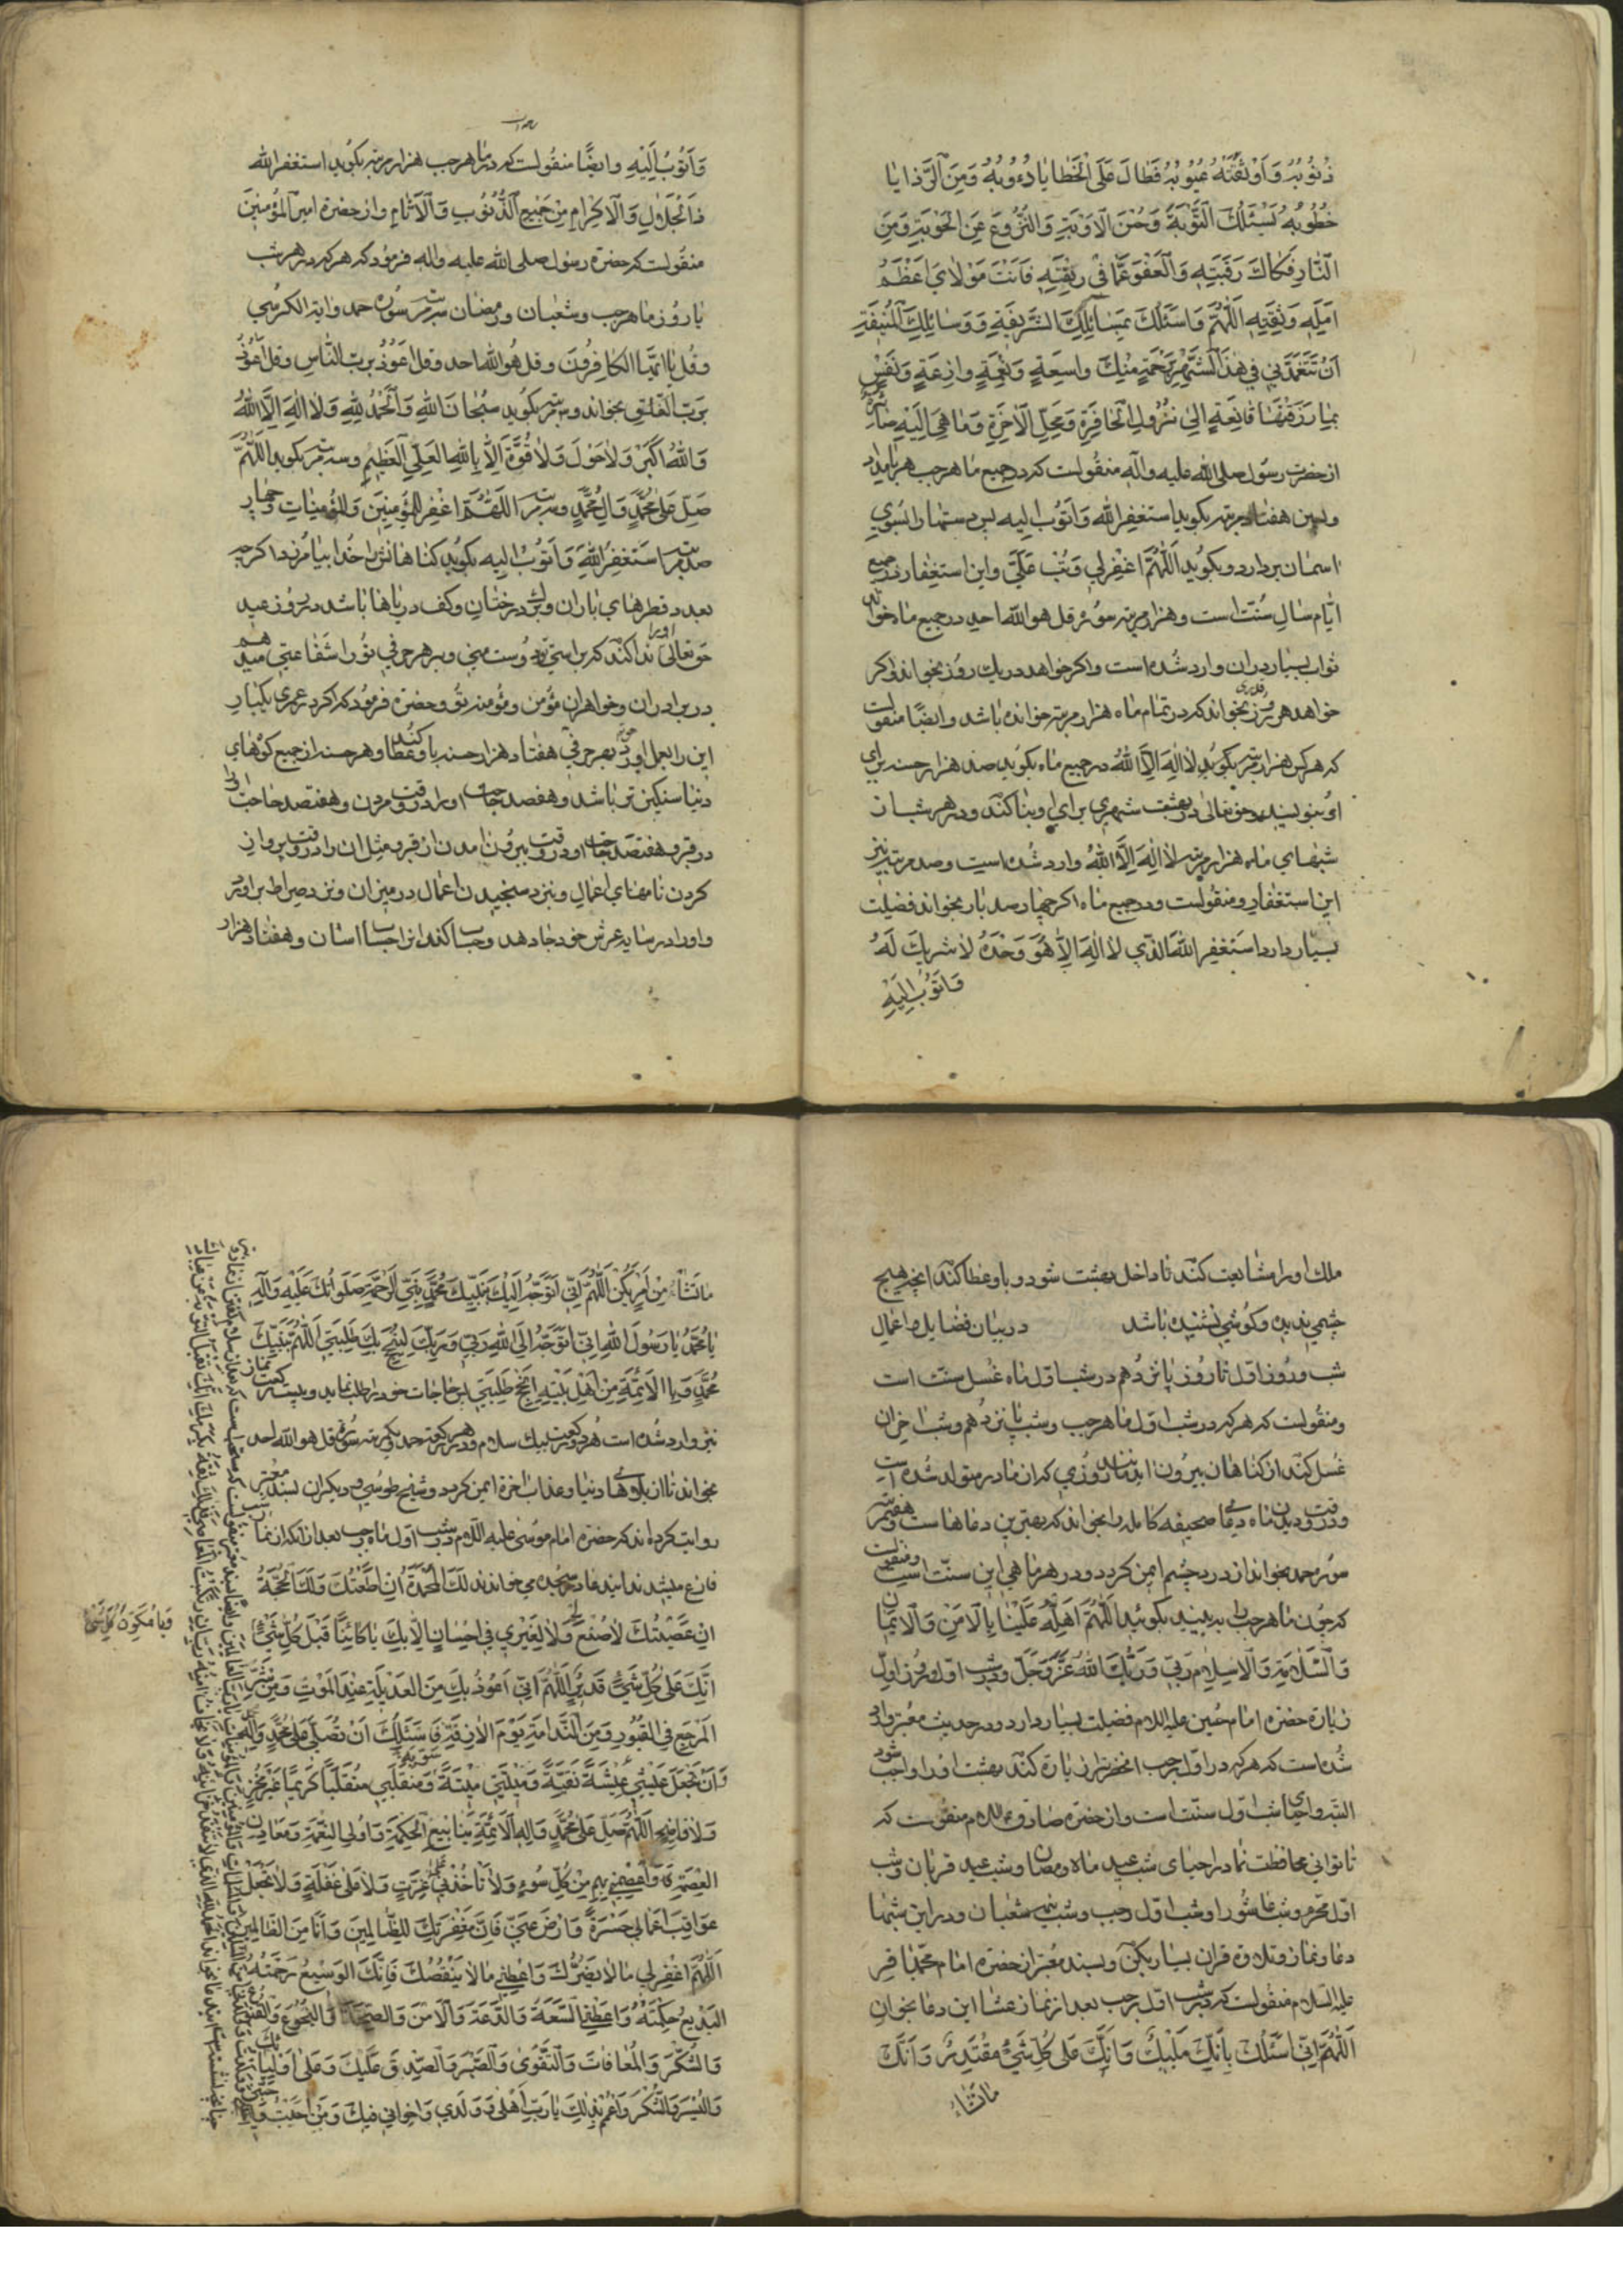 ذُنُوبُهُ وَاَوْبَقَتْهُ عُيُوبُهُ فَطَالَ عَلَى الْخَطايا دُءُوبُهُ وَمِنَ الرَّزايا
خُطُوبُهُ يَسْئَلُكَ التَّوْبَةَ وَحُسْنَ الْاَوْبَةِ وَالنُّزُوعَ عَنِ الْحَوْبَةِ وَمِنَ
النّارِ فَكاكَ رَقَبَتِهِ وَالْعَفْوَ عَمّا فى رِبْقَتِهِ فَاَنْتَ مَوْلايَ اَعْظَمُ
اَمَلِهِ وَثِقَتِهِ اَللّهُمَّ وَاَسْئَلُكَ بِمَسائِلِكَ الشَّريفَةِ وَوَسائِلِكَ الْمُنيفَةِ
اَنْ تَتَغَمَّدَني في هٰذَا الشَّهْرِ بِرَحْمَةٍ مِنْكَ واسِعَةٍ وَنِعْمَةٍ وازِعَةٍ وَنَفْسٍ
بِما رَزَقْتَها قانِعَةٍ اِلى نُزُولِ الْحافِرَةِ وَمَحَلِّ الْآخِرَةِ وَما هِيَ اِلَيْهِ صائِرَةٌ
از حضرت رسول صلى الله عليه وآله منقولست كه در جميع ماه رجب هر بامداد
وپسين هفتاد مرتبه بكويد استغفر الله واتوب اليه پس دستها را بسوي
اسمان بردارد وبكويد اَللّهُمَّ اغْفِرْلي وَتُبْ عَلَيَّ واين استغفار در جميع
ايّام سال سُنّت است وهزار مرتبه سوره قل هو الله احد در جميع ماه خواندن
ثواب بسيار در ان وارد شده است واكر خواهد در يك روز بخواند واكر
خواهد هر روز قدري بخواند كه در تمام ماه هزار مرتبه خوانده باشد وايضًا منقولست
كه هر كس هزار مرتبه بكويد لا اله الّا الله در جميع ماه بكويد صد هزار حسنه براي
او بنويسند وحق تعالى در بهشت شهري براي او بنا كند ودر هر شب از
شبهاي ماه هزار مرتبه لا اله الّا الله وارد شده است وصد مرتبه نيز
اين استغفار ومنقولست ودر جميع ماه اكر چهار صد بار بخواند فضيلت
بسيار دارد استغفر الله الذي لا اله الّا هو وحده لا شريك له
وَاَتُوبُ اِلَيْهِ
وَاَتُوبُ اِلَيْهِ وايضًا منقولست كه در ماه رجب هزار مرتبه بكويد استغفر الله
ذَا الْجَلالِ وَالْاِكْرامِ مِنْ جَميعِ الذُّنُوبِ وَالْآثامِ واز حضرة امير المؤمنين
منقولست كه حضرة رسول صلى الله عليه واله فرمود كه هر كه در هر شب
يا روز ماه رجب وشعبان ورمضان سه مرتبه سوره حمد واية الكرسي
وقل يا ايّها الكافرون وقل هو الله احد وقل اعوذ بربّ الناس وقل اعوذ
بربّ الفلق بخواند وسه مرتبه بكويد سُبْحانَ اللهِ وَالْحَمْدُ لِلّهِ وَلا اِلهَ اِلَّا اللهُ
وَاللهُ اَكْبَرُ وَلا حَوْلَ وَلا قُوَّةَ اِلّا بِاللهِ الْعَلِيِّ الْعَظيمِ وسه مرتبه بكويد اَللّهُمَّ
صَلِّ عَلى مُحَمَّدٍ وَآلِ مُحَمَّدٍ وسه مرتبه اَللّهُمَّ اغْفِرْ لِلْمُؤْمِنينَ وَالْمُؤْمِناتِ وچهار
صد مرتبه اَسْتَغْفِرُ اللهَ وَاَتُوبُ اِلَيْهِ بكويد كناهانش را خدا بيامرزد اكرچه
بعدد قطرهاي باران وبرك درختان وكف درياها باشد در روز عيد
حق تعالى او را ندا كند كه براستي تو دوست مني وبهر حرفي تو را شفاعتي ميدهم
در برادران وخواهران مؤمن ومؤمنه تو وحضرة فرمود كه اكر در عمري يكبار
اين را بعمل اورد بهر حرفي هفتاد هزار حسنه باو عطا كند وهر حسنه از جميع كوههاي
دنيا سنكين تر باشد وهفصد حاجت او را در وقت مردن وهفتصد حاجت او را
در قبر وهفتصد حاجت او در وقت بيرون امدن از قبر ومثل ان را در وقت پرواز
كردن نامهاي اعمال ونزد سنجيدن اعمال در ميزان ونزد صراط براورد
واو را در سايه عرش خود جا دهد وحساب كند او را حساب اسان وهفتاد هزار
ملك او را مشايعت كنند تا داخل بهشت شود وباو عطا كند انچه هيچ
چشمي نديده وكوشي نشنيده باشد در بيان فضايل واعمال
شب وروز اوّل تا روز پانزدهم در شب اوّل ماه غسل سنّت است
ومنقولست كه هر كه در شب اوّل ماه رجب وشب پانزدهم وشب اخر ان
غُسل كند از كناهان بيرون ايد مانند روزي كه از مادر متولد شده است
ودر وقت ديدن ماه دعاء صحيفه كامله را بخواند كه بهترين دعاهاست وهفت مرتبه
سوره حمد بخواند از درد چشم ايمن كردد ودر هر ماهي اين سنّت است ومنقولست
كه چون ماه رجب را به بيند بكويد اَللّهُمَّ اَهِلَّهُ عَلَيْنا بِالْاَمْنِ وَالْايمانِ
وَالسَّلامَةِ وَالْاِسْلامِ رَبّي وَرَبُّكَ اللهُ عَزَّ وَجَلَّ ودر شب اوّل وروز اول
زيارة حضرة امام حسين عليه السلام فضيلت بسيار دارد ودر حديث معتبر وارد
شده است كه هر كه در اوّل رجب انحضرترا زيارة كند بهشت او را واجب شود
البتّه واحياي شب اوّل سنّت است واز حضرة صادق ع منقولست كه
تا تواني محافظت نما در احياي شب عيد ماه رمضان وشب عيد قربان وشب
اوّل محرّم وشب عاشورا وشب اوّل رجب وشب نيمه شعبان ودر اين شبها
دعا ونماز وتلاوة قران بسيار بكن وبسند معتبر از حضرة امام محمّد باقر
عليه السلام منقولست كه در شب اوّل رجب بعد از نماز عشا اين دعا بخوان
اَللّهُمَّ اِنّي اَسْئَلُكَ بِاَنَّكَ مَليكٌ وَاَنَّكَ عَلى كُلِّ شَيْءٍ مُقْتَدِرٌ وَاَنَّكَ
ما تَشاءُ
ما تَشاءُ مِنْ اَمْرٍ يَكُنْ اَللّهُمَّ اِنّي اَتَوَجَّهُ اِلَيْكَ بِنَبِيِّكَ مُحَمَّدٍ نَبِيِّ الرَّحْمَةِ صَلَواتُكَ عَلَيْهِ وَآلِهِ
يا مُحَمَّدُ يا رَسُولَ اللهِ اِنّي اَتَوَجَّهُ اِلَى اللهِ رَبّي وَرَبِّكَ لِيُنْجِحَ بِكَ طَلِبَتي اَللّهُمَّ بِنَبِيِّكَ
مُحَمَّدٍ وَبِالْاَئِمَّةِ مِنْ اَهْلِ بَيْتِهِ اَنْجِحْ طَلِبَتي پس حاجات خود را طلب نمايد وبيست ركعت نماز
نيز وارد شده است هر دو ركعت بيك سلام ودر هر ركعت حمد ويكمرتبه سوره قل هو الله احد
بخواند تا از بلاهاء دنيا وعذاب اخرة ايمن كردد وشيخ طوسي وديكران بسند معتبر
روايت كرده اند كه حضرة امام موسى عليه السلام در شب اوّل ماه رجب بعد از انكه از نماز
فارغ ميشدند اين دعا در سجده مي خواندند لَكَ الْمَحْمَدَةُ اِنْ اَطَعْتُكَ وَلَكَ الْحُجَّةُ
اِنْ عَصَيْتُكَ لا صُنْعَ لي وَلا لِغَيْري في اِحْسانٍ اِلّا بِكَ يا كائِنًا قَبْلَ كُلِّ شَيْءٍ
وَيا مُكَوِّنَ كُلِّ شَيْءٍ
اِنَّكَ عَلى كُلِّ شَيْءٍ قَديرٌ اَللّهُمَّ اِنّي اَعُوذُ بِكَ مِنَ الْعَديلَةِ عِنْدَ الْمَوْتِ وَمِنْ شَرِّ
الْمَرْجَعِ فِي الْقُبُورِ وَمِنَ النَّدامَةِ يَوْمَ الْآزِفَةِ فَاَسْئَلُكَ اَنْ تُصَلِّيَ عَلى مُحَمَّدٍ وَآلِ مُحَمَّدٍ
وَاَنْ تَجْعَلَ عَيْشي عيشَةً نَقِيَّةً وَميتَتي ميتَةً سَوِيَّةً وَمُنْقَلَبي مُنْقَلَبًا كَريمًا غَيْرَ مُخْزٍ
وَلا فاضِحٍ اَللّهُمَّ صَلِّ عَلى مُحَمَّدٍ وَآلِهِ الْاَئِمَّةِ يَنابيعِ الْحِكْمَةِ وَاُولِي النِّعْمَةِ وَمَعادِنِ
الْعِصْمَةِ وَاعْصِمْني بِهِمْ مِنْ كُلِّ سُوءٍ وَلا تَأْخُذْني عَلى غِرَّةٍ وَلا عَلى غَفْلَةٍ وَلا تَجْعَلْ
عَواقِبَ اَعْمالي حَسْرَةً وَارْضَ عَنّي فَاِنَّ مَغْفِرَتَكَ لِلظّالِمينَ وَاَنَا مِنَ الظّالِمينَ
اَللّهُمَّ اغْفِرْلي ما لا يَضُرُّكَ وَاَعْطِني ما لا يَنْقُصُكَ فَاِنَّكَ الْوَسيعُ رَحْمَتُهُ
الْبَديعُ حِكْمَتُهُ وَاَعْطِنِي السَّعَةَ وَالدَّعَةَ وَالْاَمْنَ وَالصِّحَّةَ وَالنُّجُوعَ وَالْقُنُوعَ
وَالشُّكْرَ وَالْمُعافاةَ وَالتَّقْوى وَالصَّبْرَ وَالصِّدْقَ عَلَيْكَ وَعَلى اَوْلِيائِكَ
وَالْيُسْرَ وَالشُّكْرَ وَاعْمُمْ بِذلِكَ يا رَبِّ اَهْلي وَوَلَدي وَاِخْواني فيكَ وَمَنْ اَحْبَبْتُ